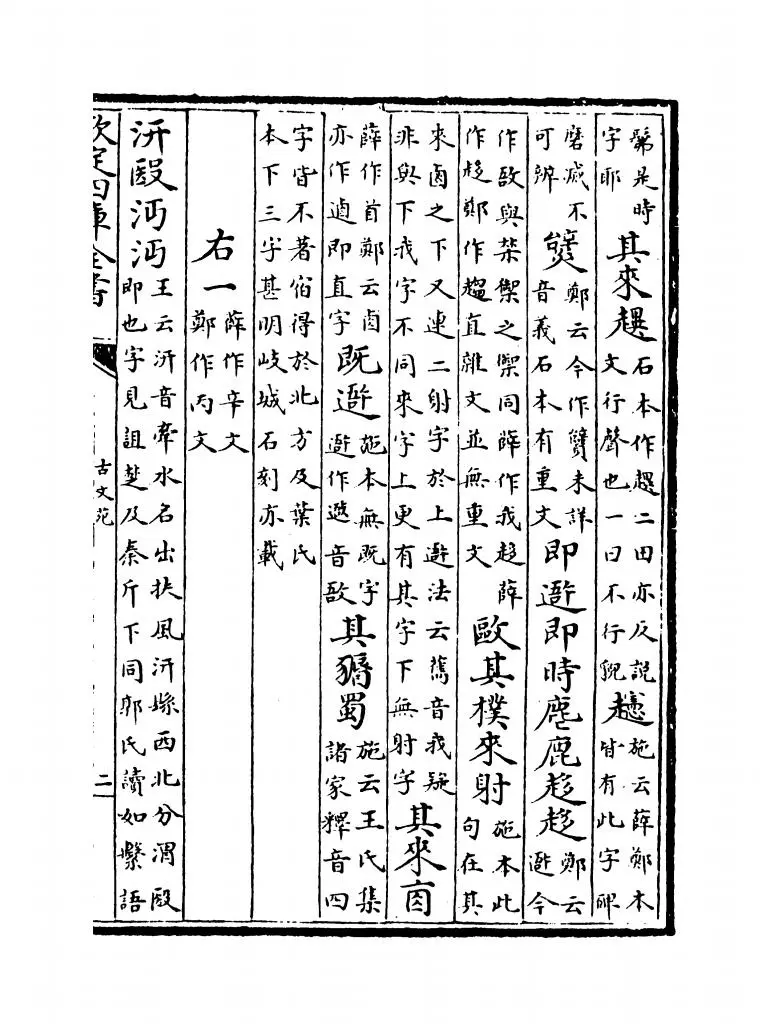 是時字耶其來趩石本作趩二田亦反說文行聲也一曰不行貌施云薛鄭本皆有此字碑
磨滅不可辨鄭云今作未詳音義石本有重文即䢸即時麀鹿趚趚鄭云䢸今
作敔與禁禦之禦同薛作我趚薛作趍鄭作趨直離文並無重文敺其樸來射施本此句在其
來鹵之下又連二射字於上䢸法云舊音我疑非與下我字不同來字上更有其字下無射字其來
薛作首鄭云鹵亦作逌即直字既䢸施本無既字䢸作遨音敔其蜀施云王氏集諸家釋音四
字皆不著俗得於北方及葉氏本下三字甚明岐城石刻亦載
右一薛作辛文鄭作丙文
汧殹沔沔王云汧音牽水名出扶風汧縣西北分渭殹即也字見詛楚及秦斤下同郭氏讀如繄語
欽定四庫全書
古文苑
二